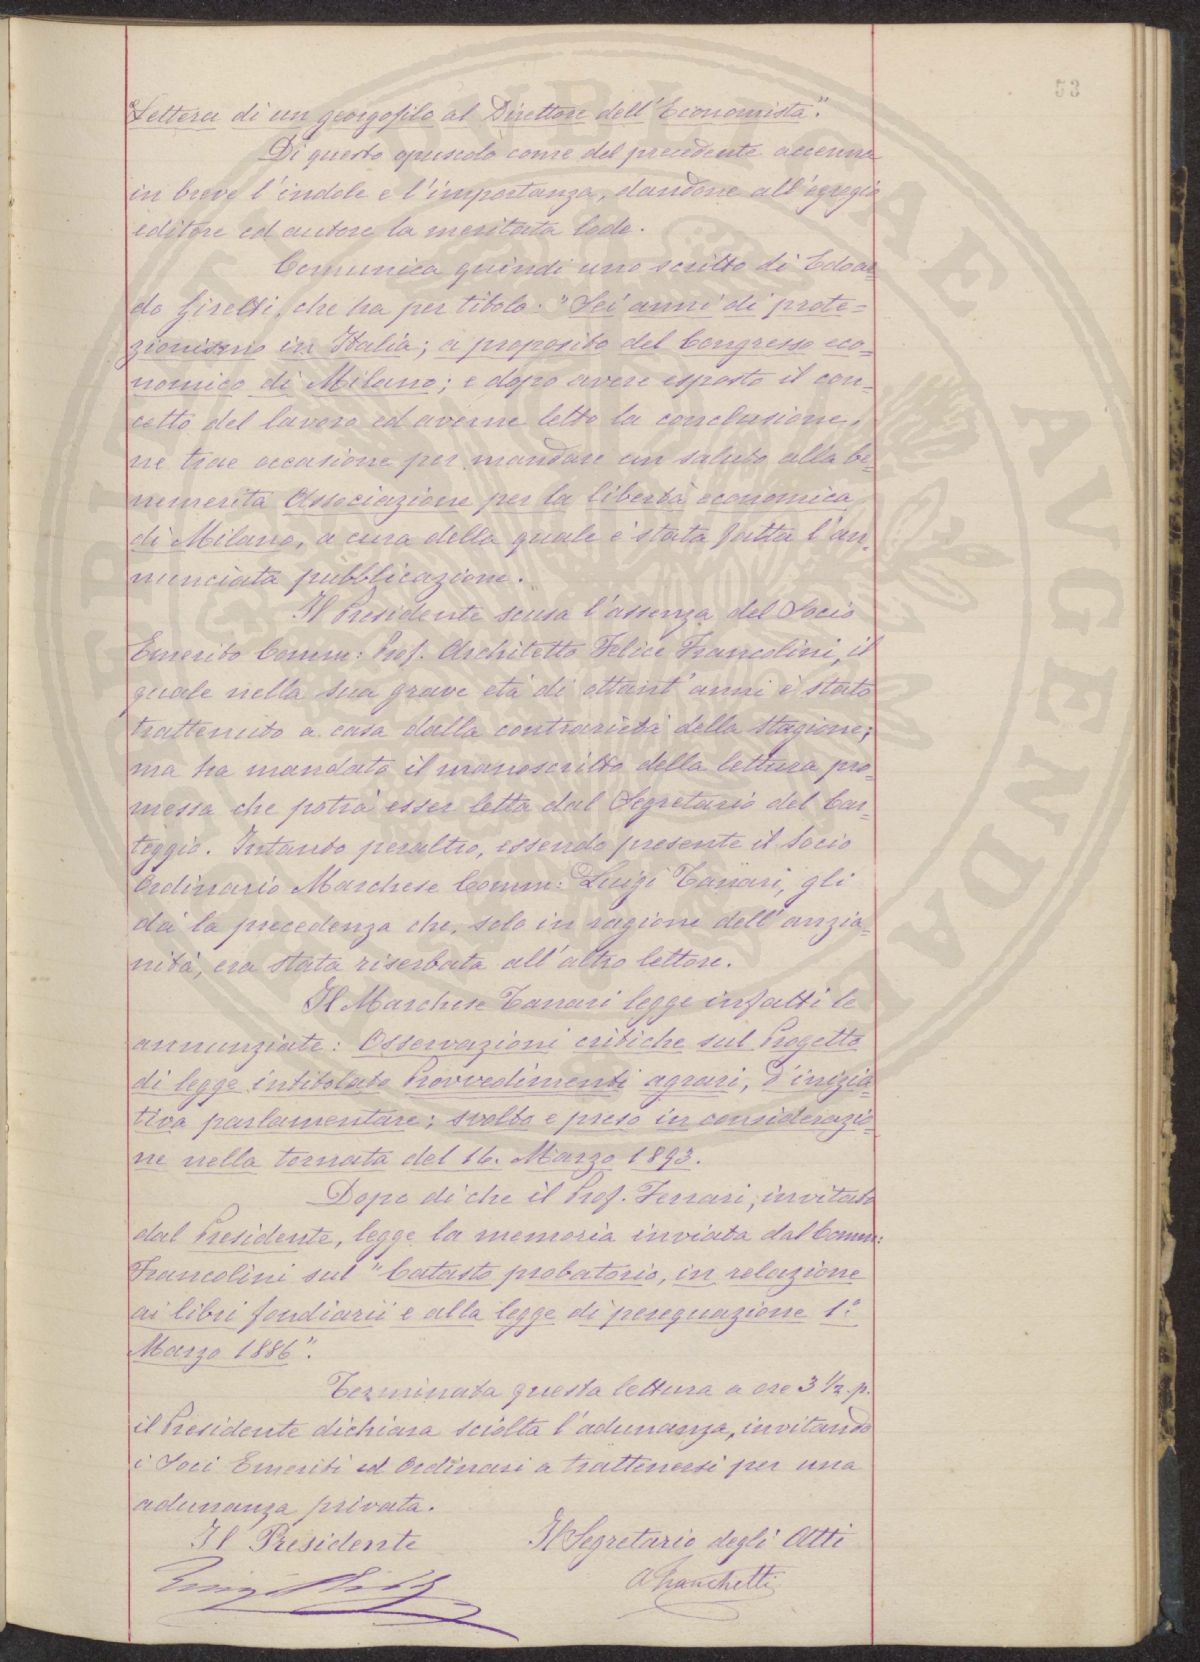 53
"Lettera di un georgofilo al Direttore dell'Economista".
Di questo opuscolo come del precedente accenna
in breve l'indole e l'importanza, dandone all'egregio
editore ed autore la meritata lode.
Comunica quindi uno scritto di Edoar-
do Giretti, che ha per titolo: "Sei anni di prote=
zionismo in Italia; a proposito del Congresso eco=
nomico di Milano; e dopo avere esposto il con=
cetto del lavoro ed averne letto la conclusione,
ne trae occasione per mandare un saluto alla be=
nemerita Associazione per la libertà economica
di Milano, a cura della quale è stata fatta l'an=
nunciata pubblicazione.
Il Presidente scusa l'assenza del Socio
Emerito Comm: Prof. Architetto Felice Francolini, il
quale nella sua grave età di ottant'anni è stato
trattenuto a casa dalla contrarietà della stagione;
ma ha mandato il manoscritto della lettura pro=
messa che potrà esser letta dal Segretario del Car=
teggio. Intanto peraltro, essendo presente il Socio
Ordinario Marchese Comm: Luigi Tanari, gli
dà la precedenza che, solo in ragione dell'anzia=
nità, era stata riserbata all'altro lettore.
Il Marchese Tanari legge infatti le
annunziate: Osservazioni critiche sul Progetto
di legge intitolato Provvedimenti agrari, d'inizia=
tiva parlamentare; svolto e preso in considerazio=
ne nella tornata del 16. Marzo 1893.
Dopo di che il Prof. Ferrari, invitato
dal Presidente, legge la memoria inviata dal Comm:
Francolini sul "Catasto probatorio, in relazione
ai libri fondiarii e alla legge di perequazione 1.°
Marzo 1886".
Terminata questa lettura a ore 3 1/2. p.
il Presidente dichiara sciolta l'adunanza, invitando
i Soci Emeriti ed Ordinari a trattenersi per una
adunanza privata.
Il Presidente Il Segretario degli Atti
A Franchetti